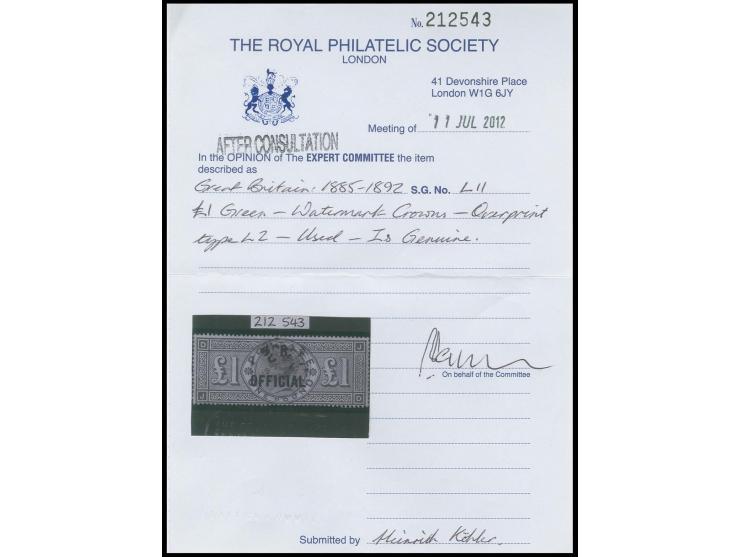 No. 212543
THE ROYAL PHILATELIC SOCIETY
LONDON
41 Devonshire Place
London W1G 6JY
Meeting of 11 JUL 2012
AFTER CONSULTATION
In the OPINION of The EXPERT COMMITTEE the item
described as
Great Britain: 1885-1892 S.G. No. L11
£1 Green - Watermark Crowns - Overprint
type L2 - Used - Is Genuine.
212 543
D J
I.R.
£1 OFFICIAL £1
ONE POUND
J D
On behalf of the Committee
Submitted by Heinrich Köhler.